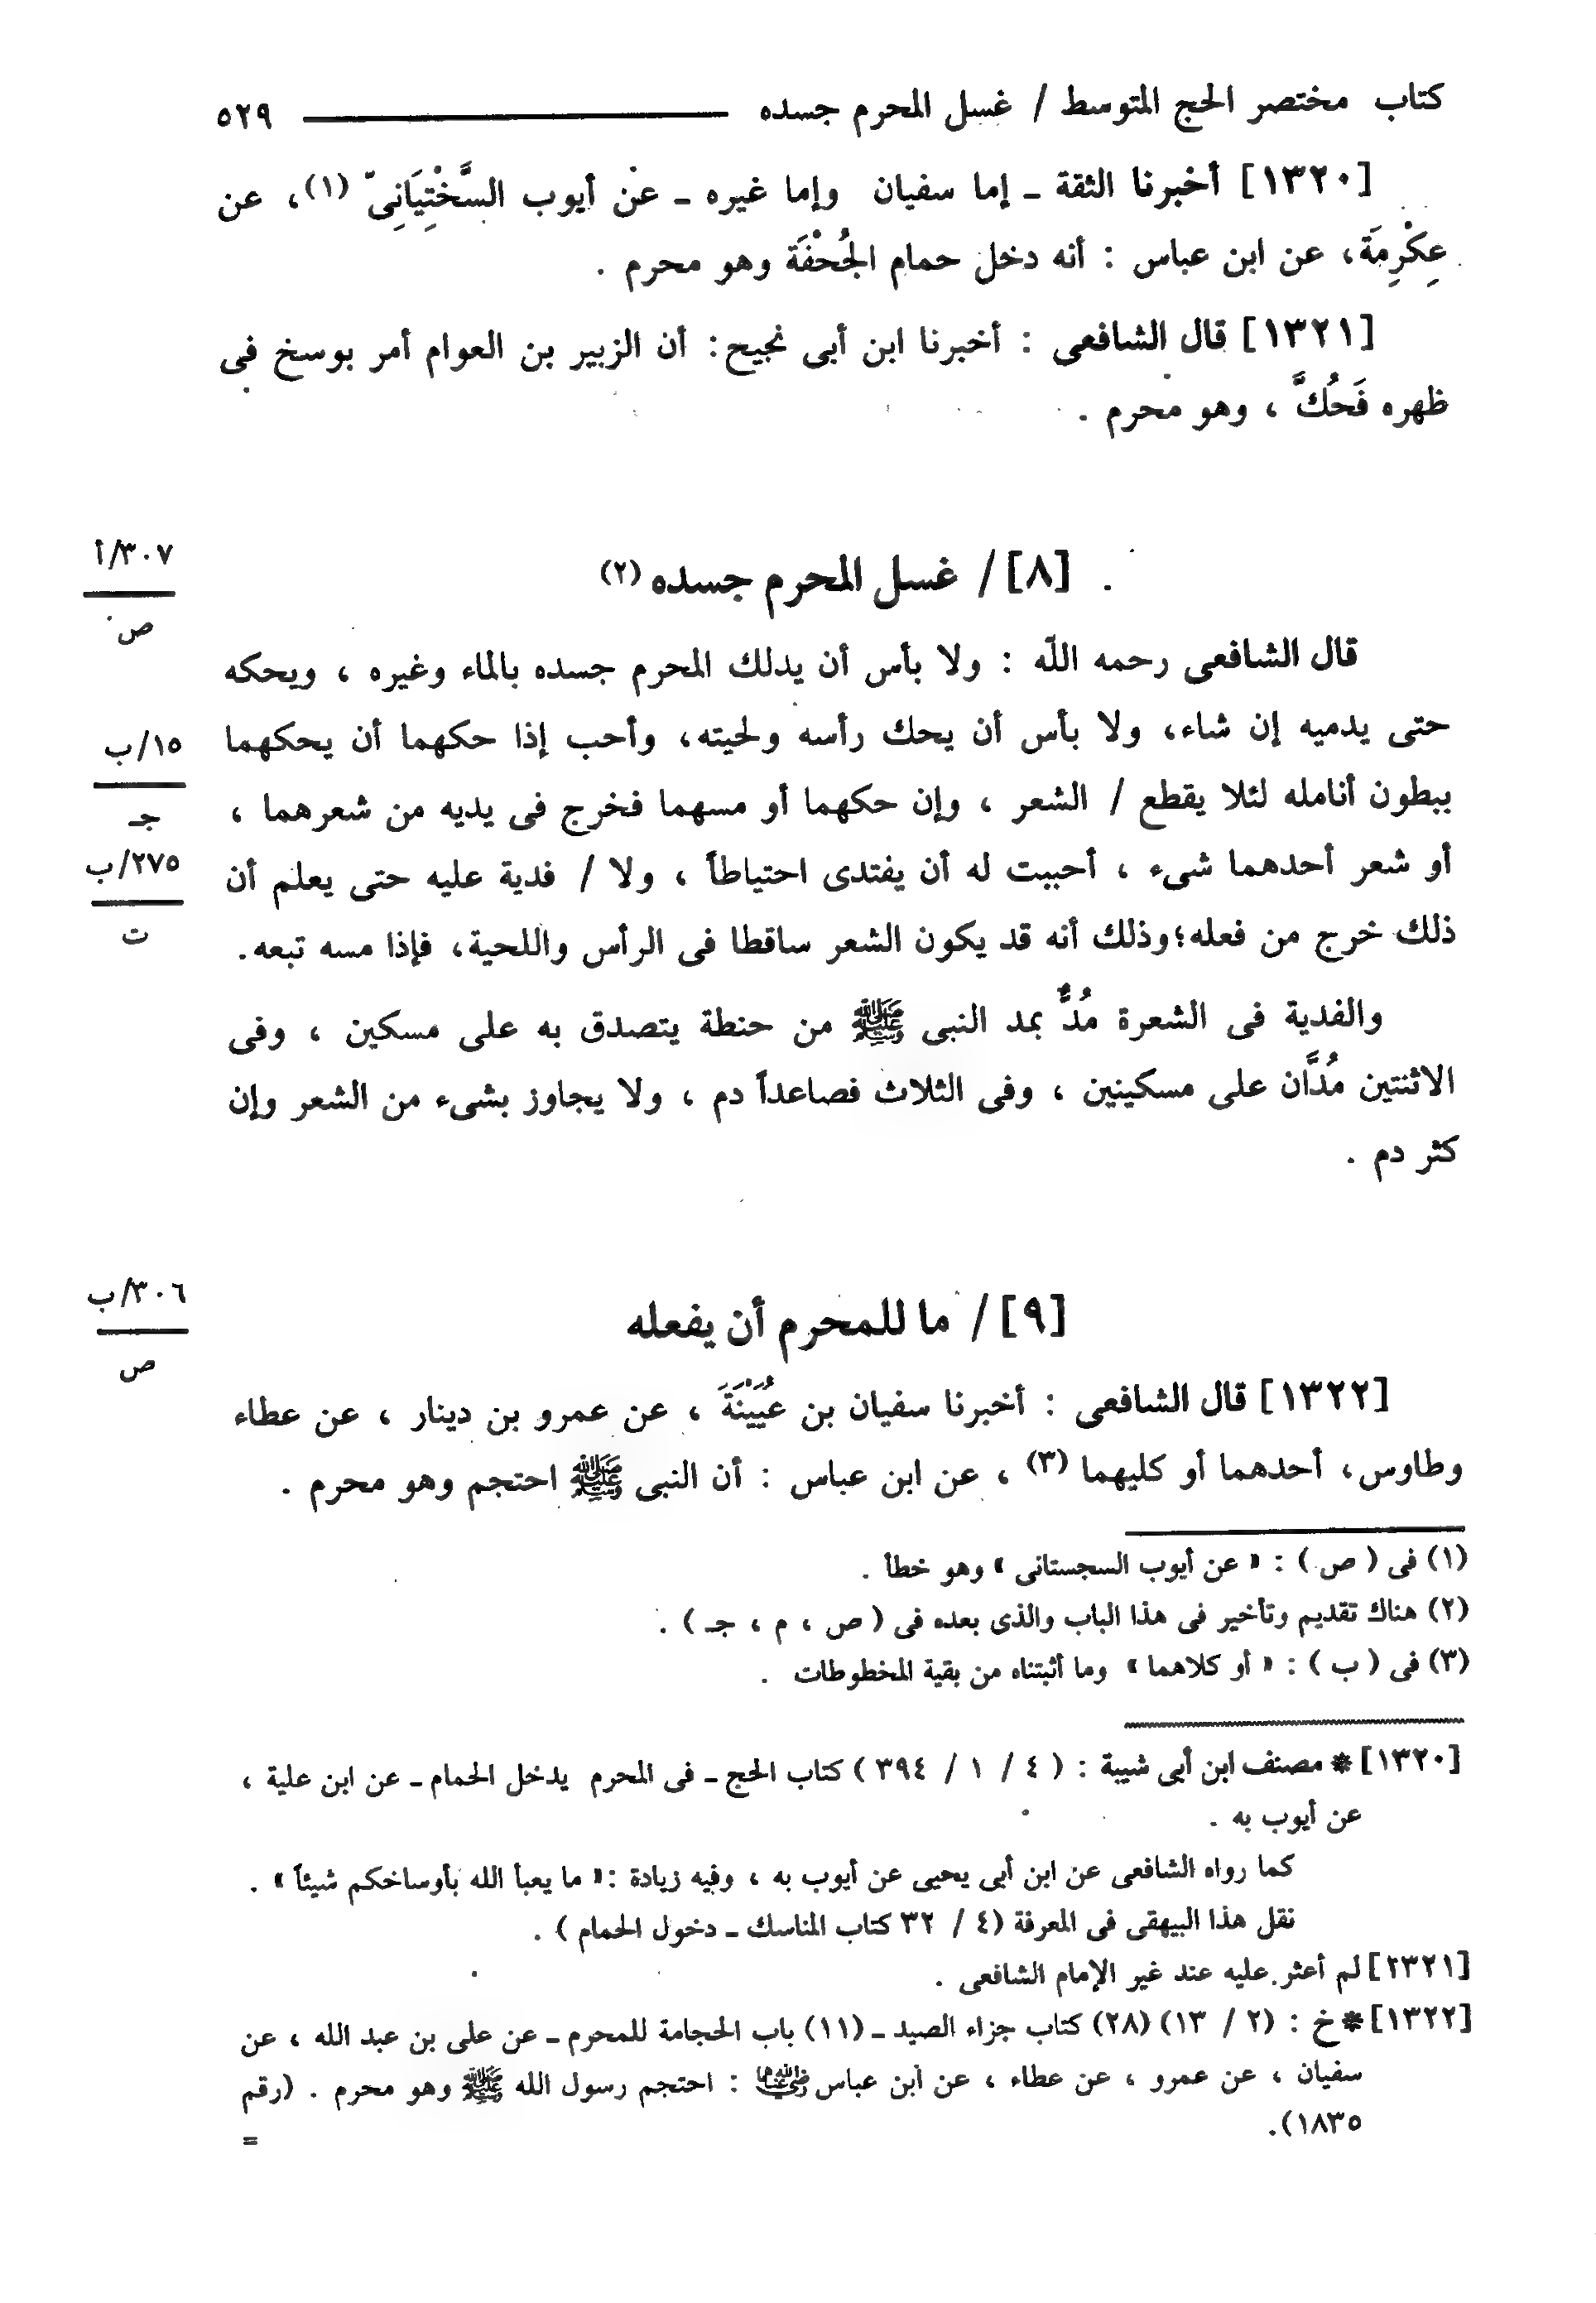 كتاب مختصر الحج المتوسط / غسل المحرم جسده ـــــــــ ٥٢٩
[١٣٢٠] أخبرنا الثقة ـ إما سفيان وإما غيره ـ عن أيوب السَّخْتِيَانِىّ (١)، عن
عِكْرِمَة، عن ابن عباس : أنه دخل حمام الجُحْفَة وهو محرم .
[١٣٢١] قال الشافعى : أخبرنا ابن أبى نجيح: أن الزبير بن العوام أمر بوسخ فى
ظهره فَحُكَّ ، وهو محرم .
٣٠٧/أ
ص
[٨] / غسل المحرم جسده (٢)
قال الشافعى رحمه اللّه : ولا بأس أن يدلك المحرم جسده بالماء وغيره ، ويحكه
حتى يدميه إن شاء، ولا بأس أن يحك رأسه ولحيته، وأحب إذا حكهما أن يحكهما
١٥/ب
جـ
ببطون أنامله لئلا يقطع / الشعر ، وإن حكهما أو مسهما فخرج فى يديه من شعرهما ،
أو شعر أحدهما شىء ، أحببت له أن يفتدى احتياطاً ، ولا / فدية عليه حتى يعلم أن
٢٧٥/ب
ت
ذلك خرج من فعله؛وذلك أنه قد يكون الشعر ساقطا فى الرأس واللحية، فإذا مسه تبعه.
والفدية فى الشعرة مُدٌّ بمد النبى ﷺ من حنطة يتصدق به على مسكين ، وفى
الاثنتين مُدَّان على مسكينين ، وفى الثلاث فصاعداً دم ، ولا يجاوز بشىء من الشعر وإن
كثر دم .
٣٠٦/ب
ص
[٩] / ما للمحرم أن يفعله
[١٣٢٢] قال الشافعى : أخبرنا سفيان بن عُيَيْنَةَ ، عن عمرو بن دينار ، عن عطاء
وطاوس، أحدهما أو كليهما (٣) ، عن ابن عباس : أن النبى ﷺ احتجم وهو محرم .
(١) فى ( ص ) : « عن أيوب السجستانى » وهو خطأ .
(٢) هناك تقديم وتأخير فى هذا الباب والذى بعده فى ( ص ، م ، جـ ) .
(٣) فى ( ب ) : « أو كلاهما » وما أثبتناه من بقية المخطوطات .
[١٣٢٠] * مصنف ابن أبى شيبة : ( ٤ / ١ / ٣٩٤ ) كتاب الحج ـ فى المحرم يدخل الحمام ـ عن ابن علية ،
عن أيوب به .
كما رواه الشافعى عن ابن أبى يحيى عن أيوب به ، وفيه زيادة :« ما يعبأ الله بأوساخكم شيئاً » .
نقل هذا البيهقى فى المعرفة (٤ / ٣٢ كتاب المناسك ـ دخول الحمام ) .
[١٣٢١] لم أعثر عليه عند غير الإمام الشافعى .
[١٣٢٢] * خ : (٢ / ١٣) (٢٨) كتاب جزاء الصيد ـ (١١) باب الحجامة للمحرم ـ عن على بن عبد الله ، عن
سفيان ، عن عمرو ، عن عطاء ، عن ابن عباس رضي الله عنهما : احتجم رسول الله ﷺ وهو محرم . (رقم
١٨٣٥).
=